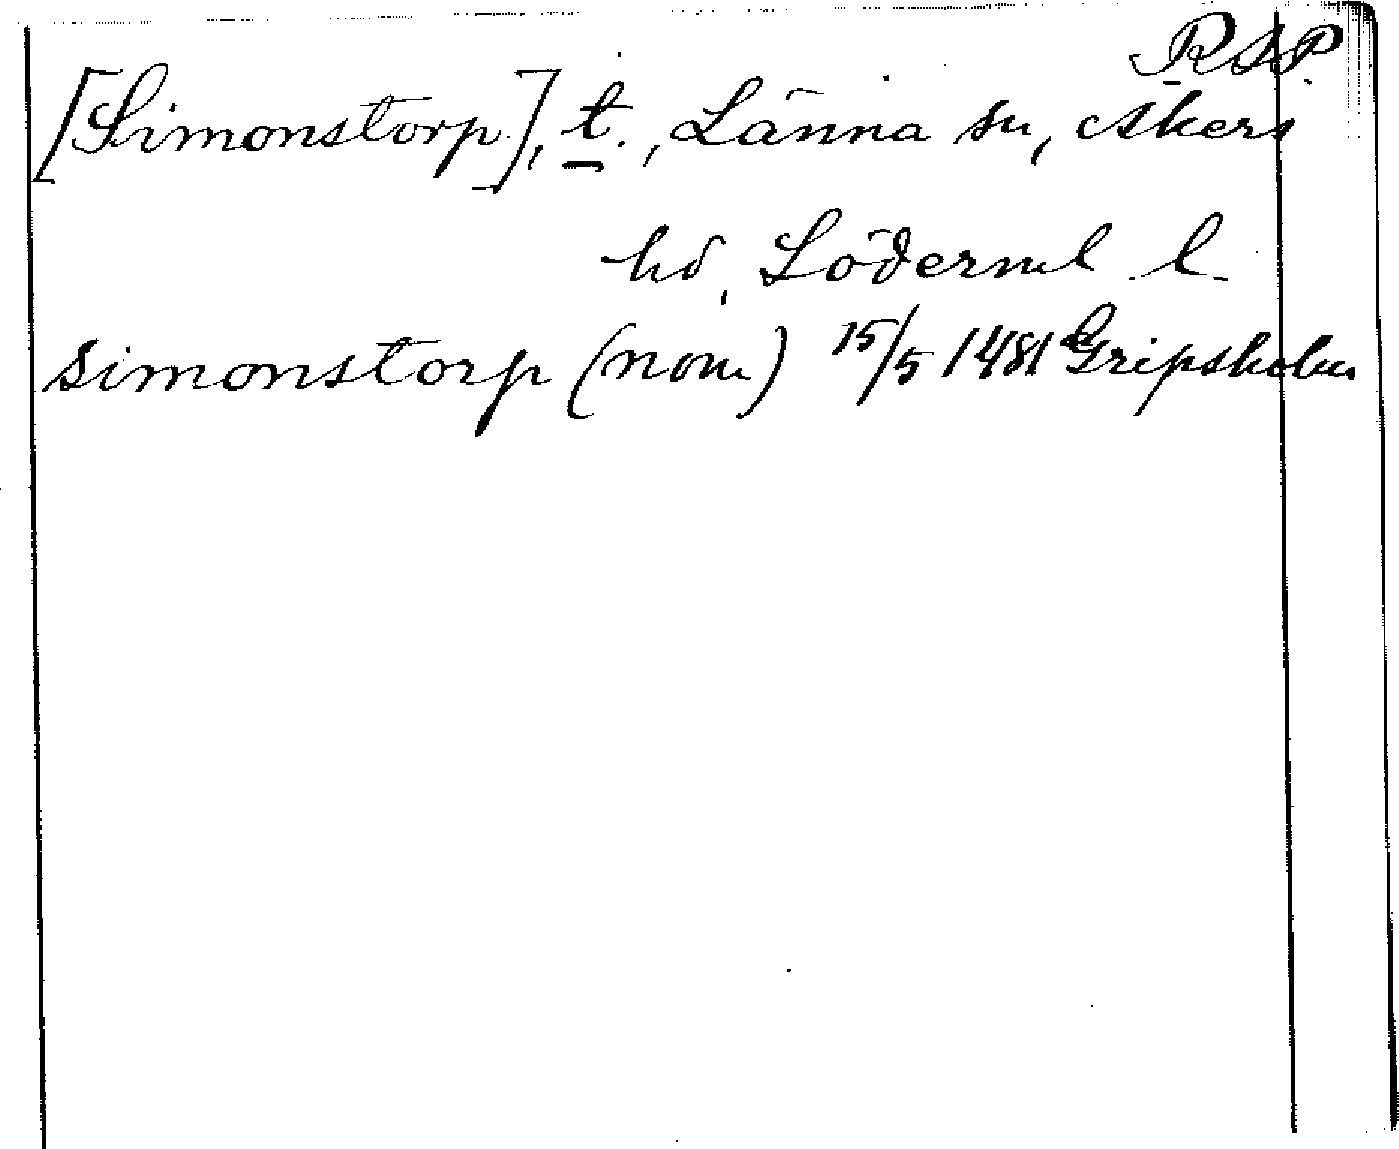 RAP
[Simonstorp], t., Länna sn, Åkers
hd, Söderml l.
simonstorp (nom) 15/5 1481 Gripsholm